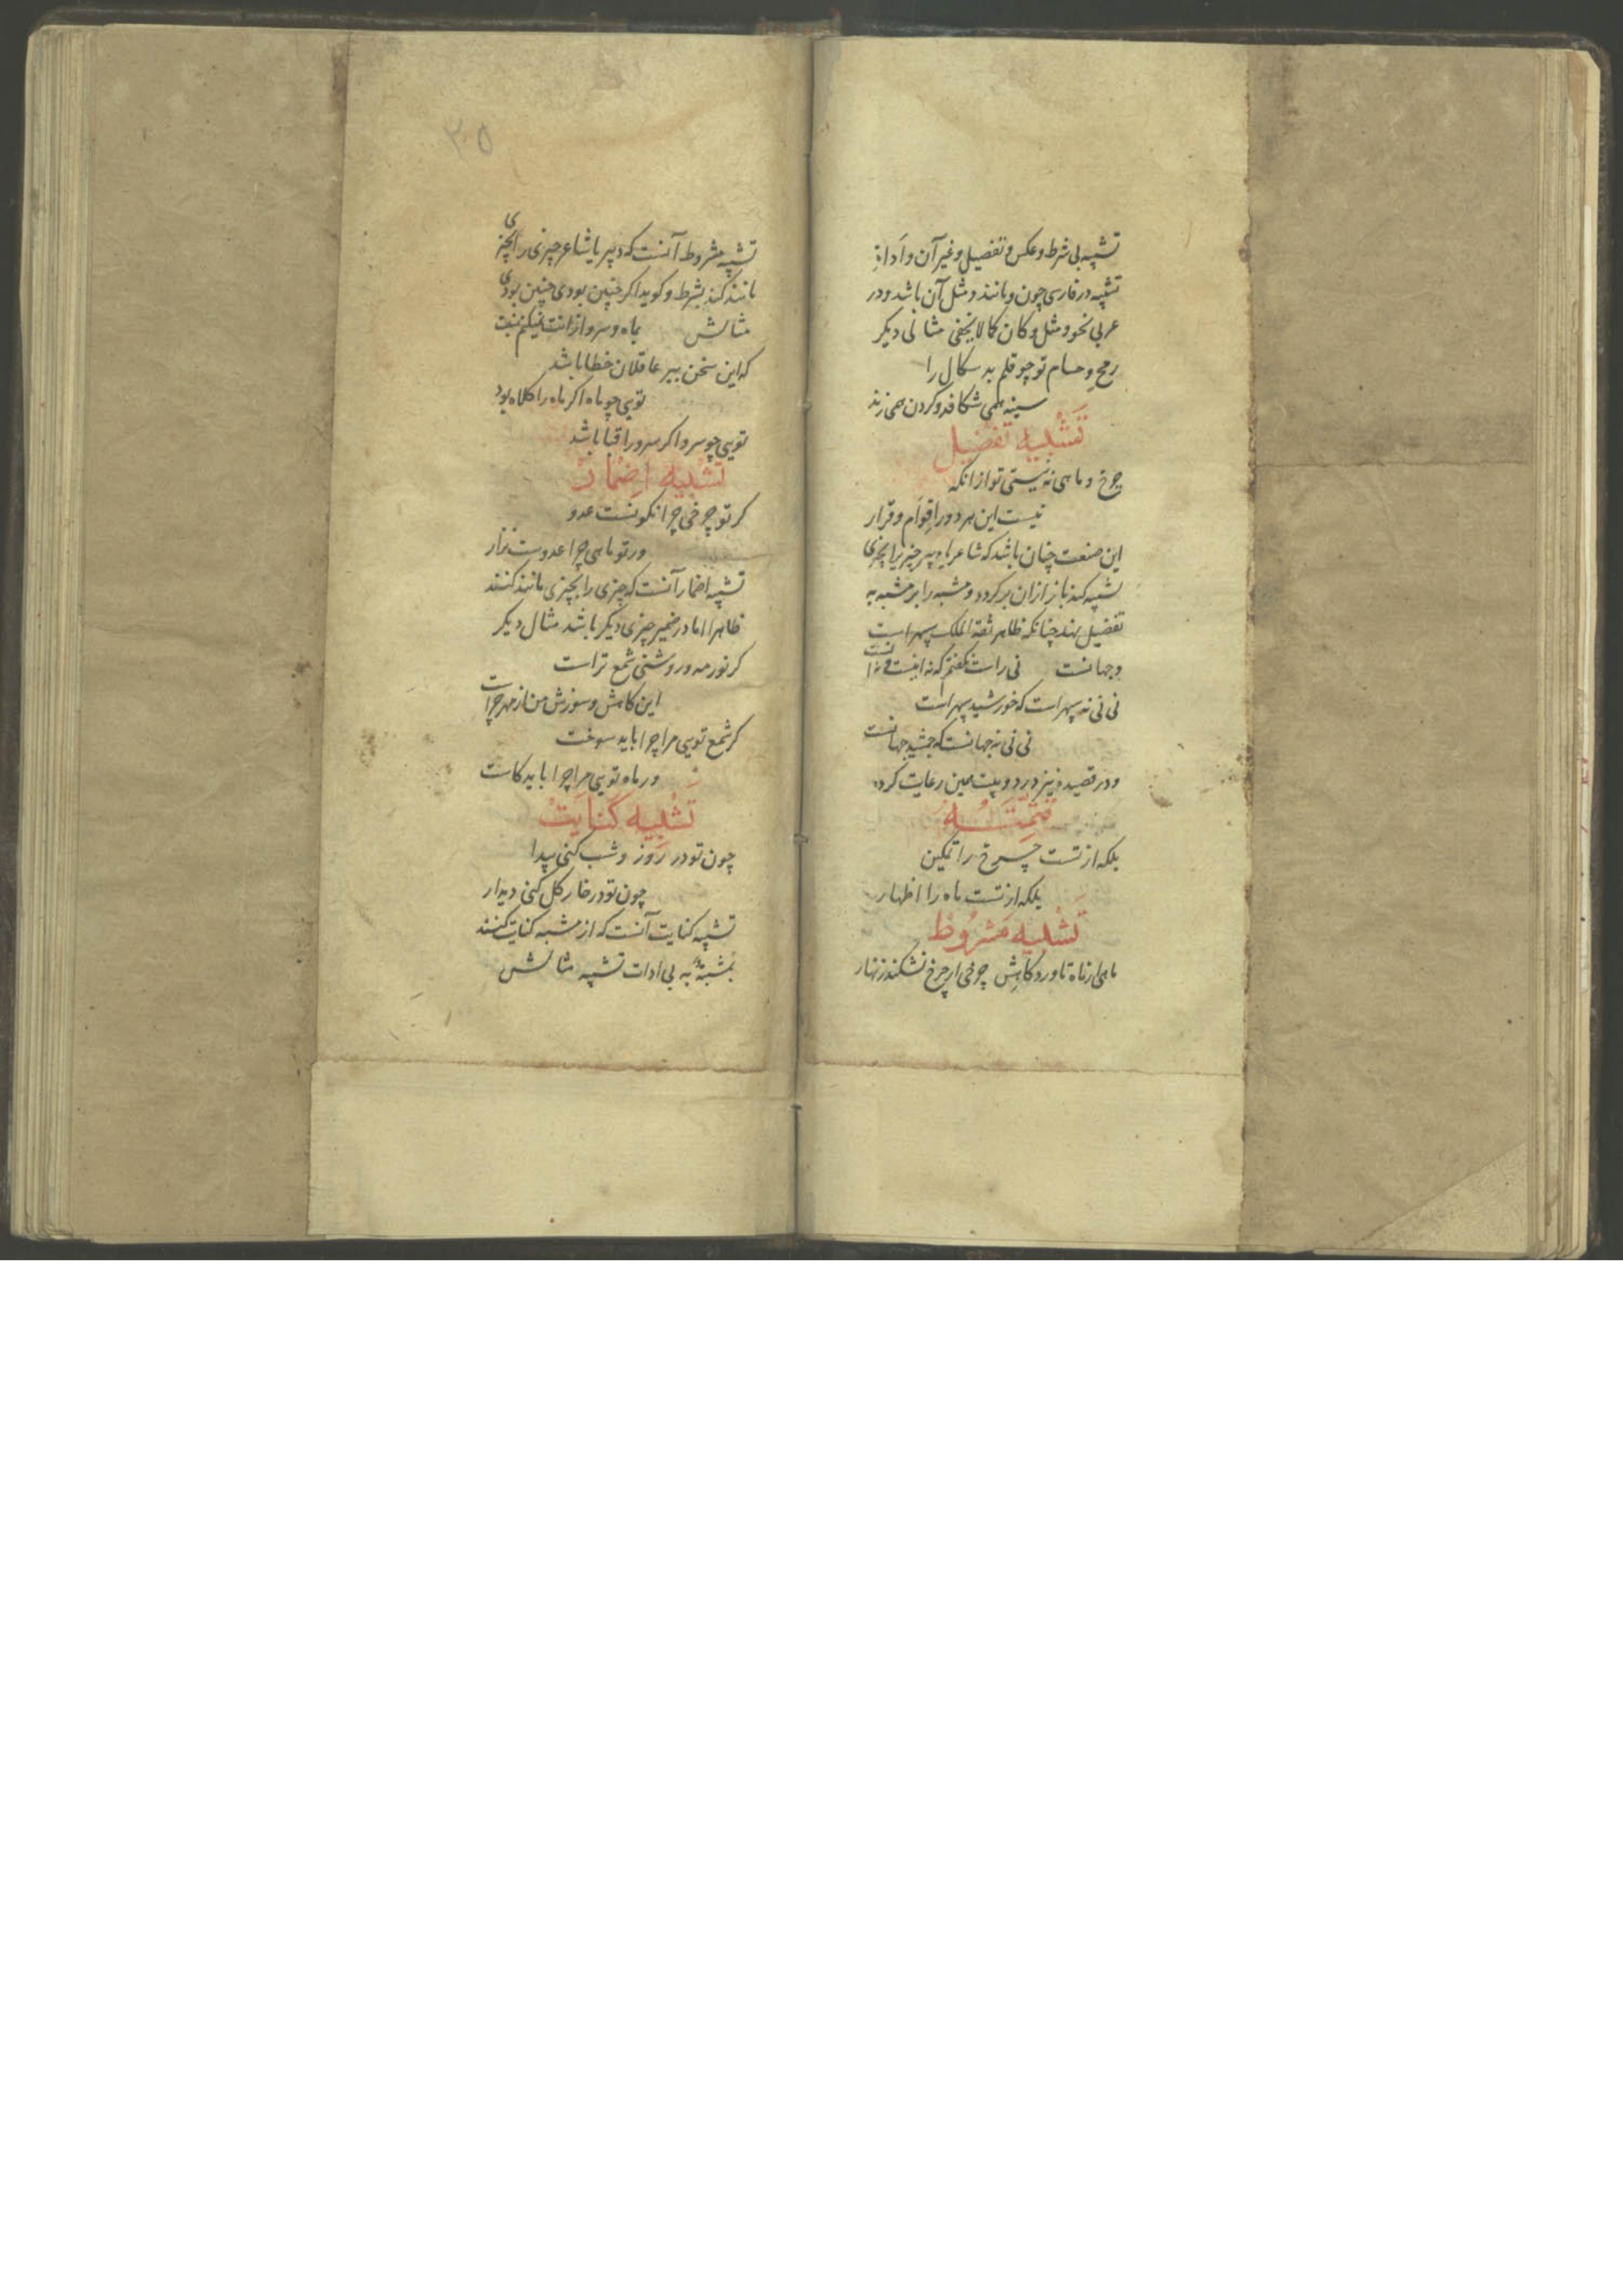 تشبیه بی شرط و عکس و تفضیل و غیر آن و اَداةِ
تشبیه در فارسی چون و مانند و مثل آن باشد و در
عربی نحو و مثل و کان کما لا یخفی مثالی دیکر
رمح و حسام تو چو قلم بد سکال را
سینه همی شکافد و کردن همی زند
تَشْبیه تفضیل
چرخ و ماهی نه نیستی تو از انکه
نیست این هر دو را قوام و قرار
این صنعت چنان باشد که شاعر یا دبیر چیزیرا بچیزی
تشبیه کند باز ازان بر کردد و مشبه را بر مشبه به
تفضیل نهد چنانکه طاهر ثقة الملک سپهر است
و جهانست نی راست نکفتم که نه اینست و نه آنست
نی نی نه سپهر است که خورشید سپهر است
نی نی نه جهانست که جمشید جهانست
و در قصیده نیز در دو بیت همین رعایت کرده
تَتِمَّتُــه
بلکه از تست چرخ را تمکین
بلکه از تست ماه را اظهار
تَشْبیه مَشْروط
ماهی ار ماه ناورد کاهش چرخی ار چرخ نشکند زنهار
۳۰۵
تشبیه مشروط آنست که دبیر یا شاعر چیزی را بچیزی
مانند کند بشرط و کوید اکر چنین بودی چنین بودی
مثالش بماه و سرو از انت نمیکنم نسبت
که این سخن ببر عاقلان خطا باشد
تویی چو ماه اکر ماه را کلاه بود
تویی چو سرو اکر سرو را قبا باشد
تشبیه اضمار
کر تو چرخی چرا نکونست عدو
ور تو ماهی چرا عدوست نزار
تشبیه اضمار آنست که چیزی را بچیزی مانند کنند
ظاهرا اما در ضمیر چیزی دیکر باشد مثال دیکر
کر نور مه و روشنی شمع تراست
این کاهش و سوزش من از مهر چراست
کر شمع تویی مرا چرا باید سوخت
ور ماه تویی مرا چرا باید کاست
تَشْبیه کنایت
چون تو در روز و شب کنی پیدا
چون تو در خار کل کنی دیدار
تشبیه کنایت آنست که از مشبه کنایت کنند
بمشبه به بی ادات تشبیه مثالش